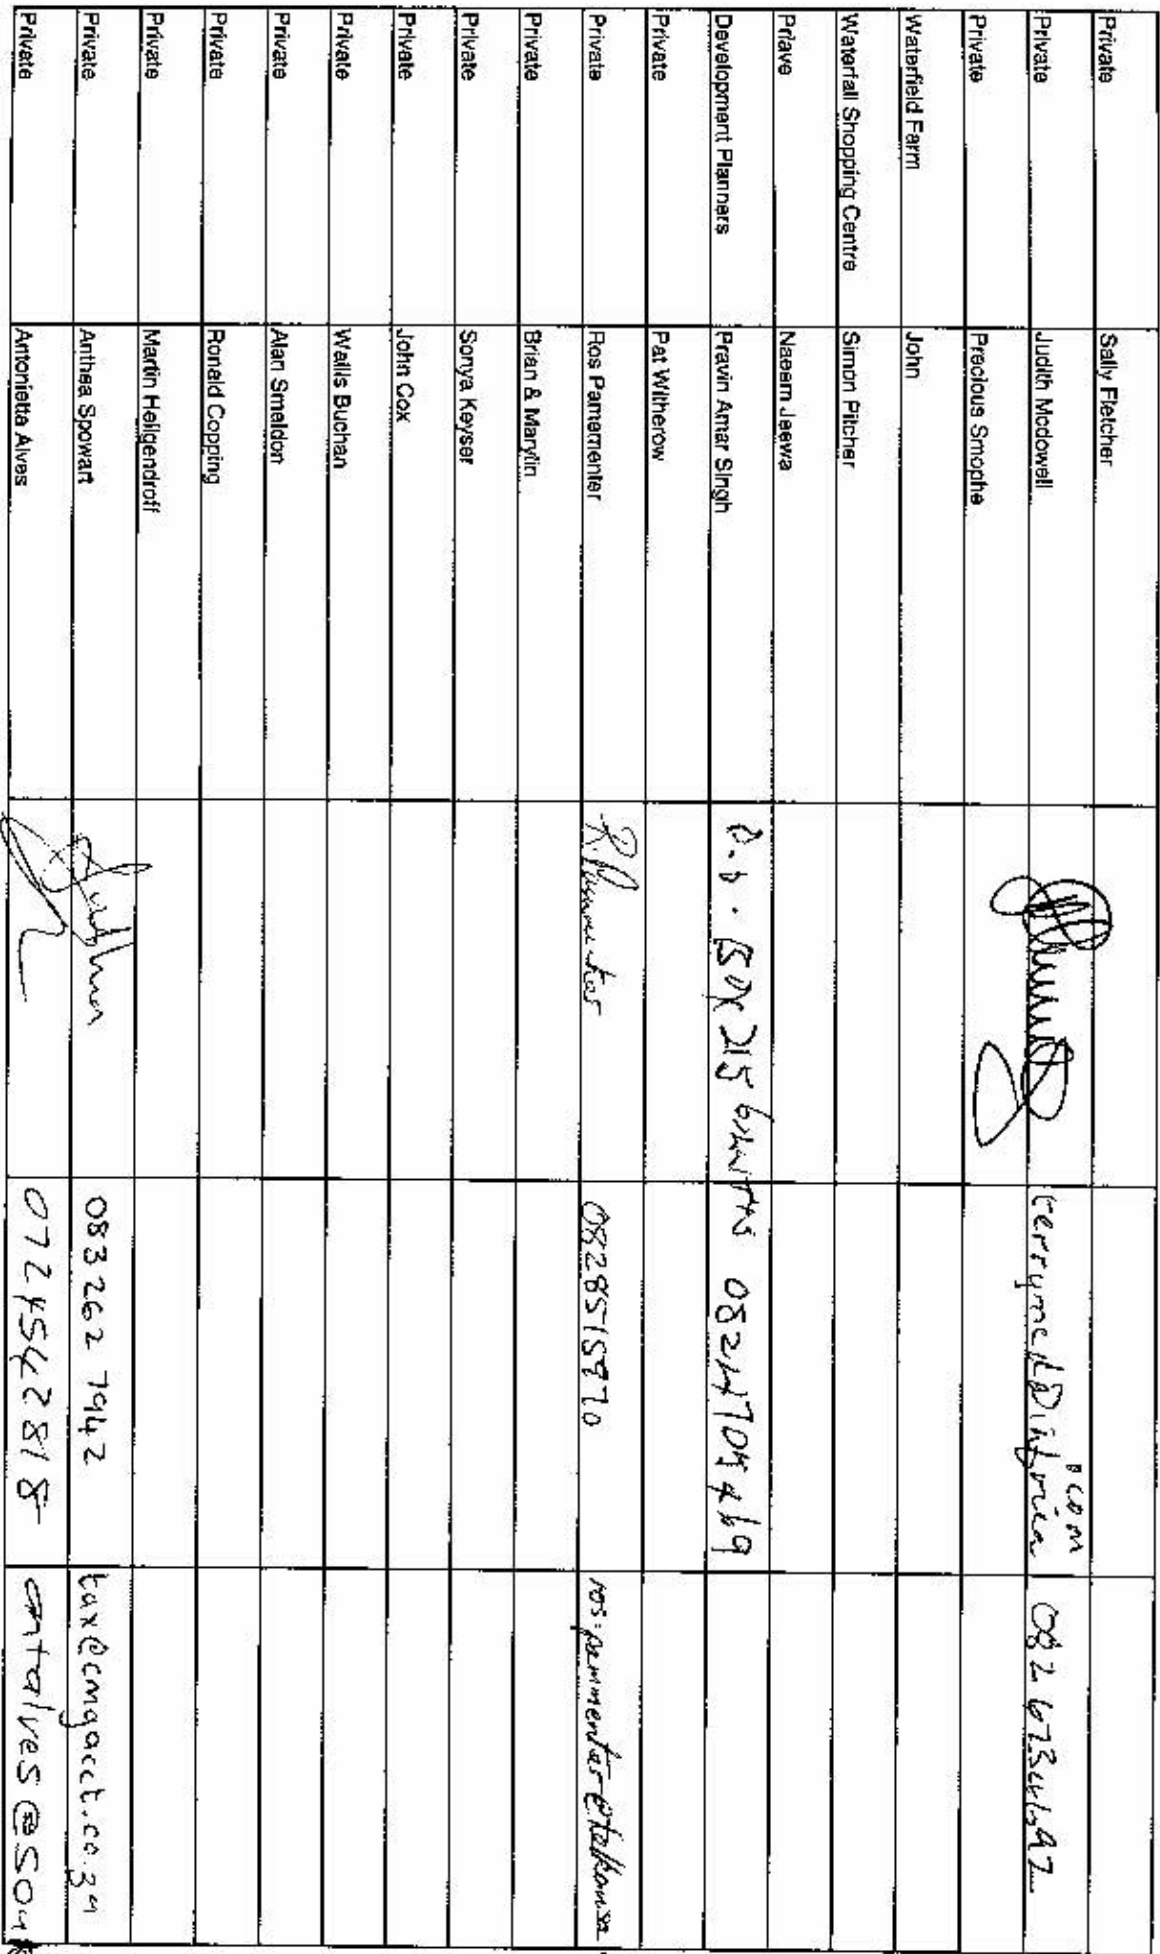 Private Sally Fletcher
Private Judith Mcdowell .com
Private Precious Smophe
Waterfield Farm John
Waterfall Shopping Centre Simon Pitcher
Priave Naeem Jeewa
Development Planners Pravin Amar Singh P.O. BOX 215
Private Pat Witherow
Private Ros Pamementer 0828515970
Private Brian & Marylin
Private Sonya Keyser
Private John Cox
Private Wallis Buchan
Private Alan Smeldon
Private Ronald Copping
Private Martin Heligendroff
Private Anthea Spowart 083 262 7942 tax@cmgacct.co.za
Private Antonietta Alves 0724542818 antalves@